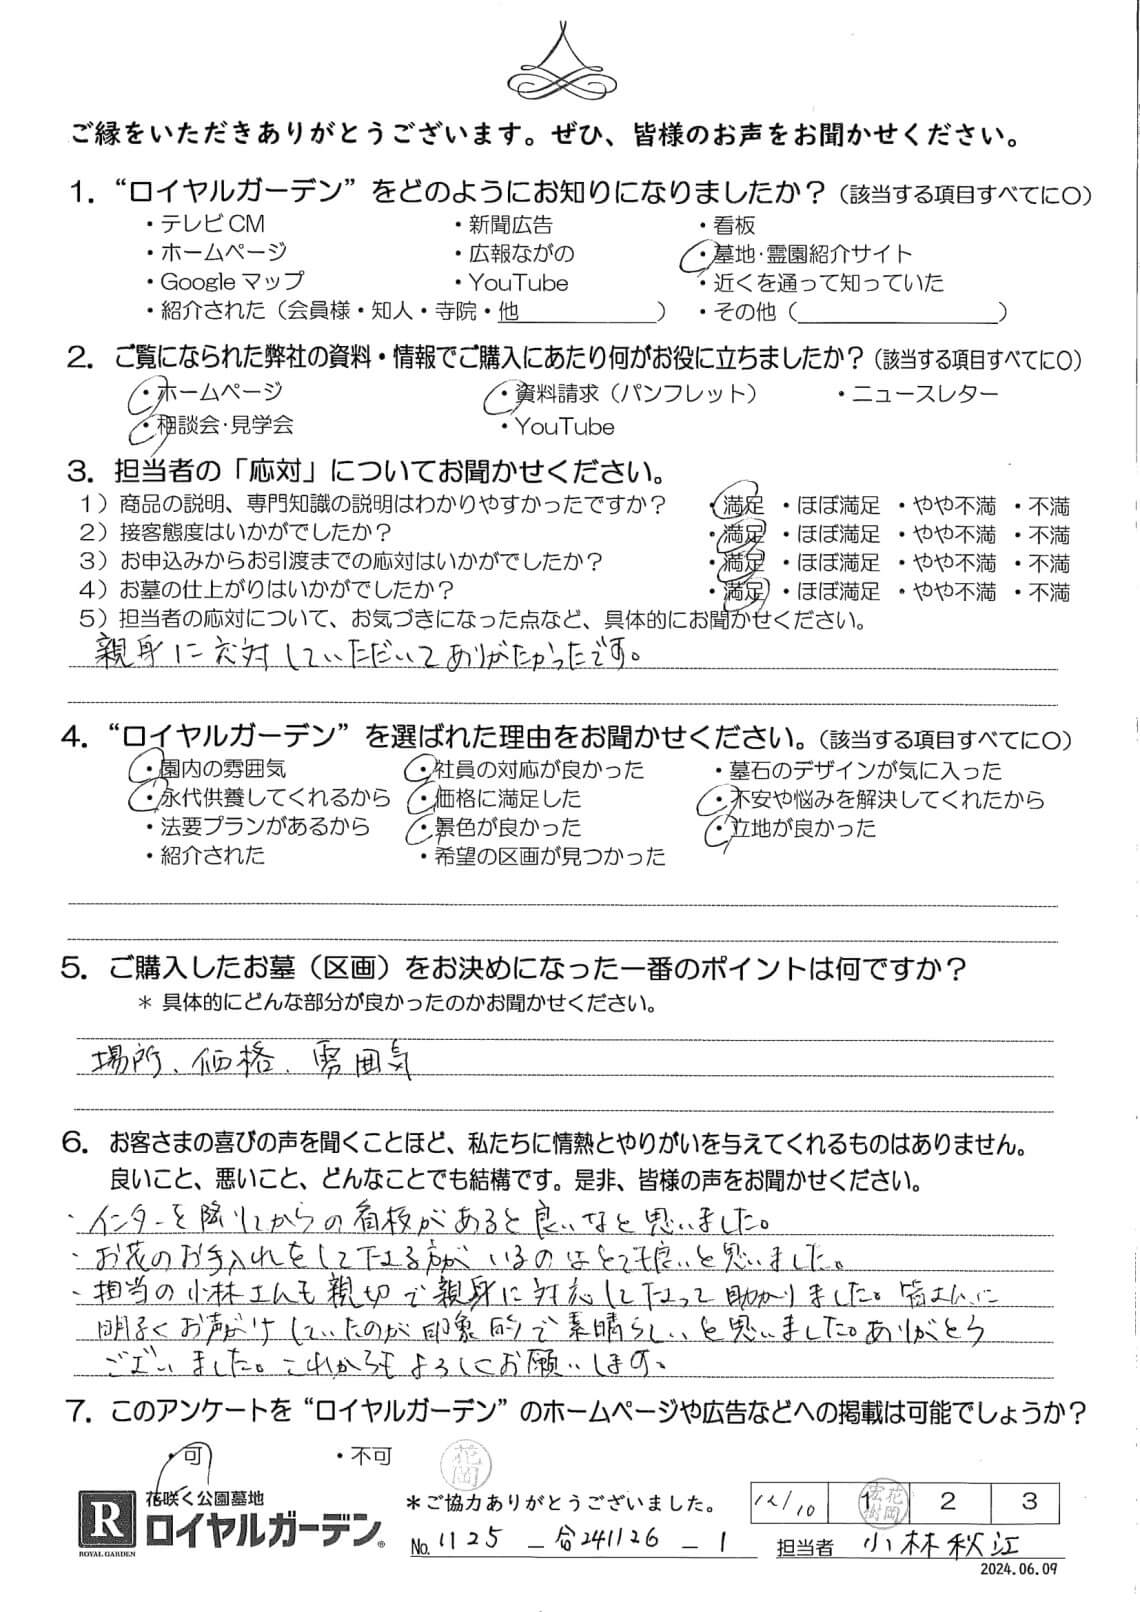 ご縁をいただきありがとうございます。ぜひ、皆様のお声をお聞かせください。
1. “ロイヤルガーデン”をどのようにお知りになりましたか？（該当する項目すべてに〇）
・テレビCM ・新聞広告 ・看板
・ホームページ ・広報ながの ・墓地・霊園紹介サイト
・Googleマップ ・YouTube ・近くを通って知っていた
・紹介された（会員様・知人・寺院・他＿＿＿＿＿＿） ・その他（＿＿＿＿＿＿＿＿）
2. ご覧になられた弊社の資料・情報でご購入にあたり何がお役に立ちましたか？（該当する項目すべてに〇）
・ホームページ ・資料請求（パンフレット） ・ニュースレター
・相談会・見学会 ・YouTube
3. 担当者の「応対」についてお聞かせください。
1）商品の説明、専門知識の説明はわかりやすかったですか？ ・満足 ・ほぼ満足 ・やや不満 ・不満
2）接客態度はいかがでしたか？ ・満足 ・ほぼ満足 ・やや不満 ・不満
3）お申込みからお引渡までの応対はいかがでしたか？ ・満足 ・ほぼ満足 ・やや不満 ・不満
4）お墓の仕上がりはいかがでしたか？ ・満足 ・ほぼ満足 ・やや不満 ・不満
5）担当者の応対について、お気づきになった点など、具体的にお聞かせください。
親身に応対していただいてありがたかったです。
4. “ロイヤルガーデン”を選ばれた理由をお聞かせください。（該当する項目すべてに〇）
・園内の雰囲気 ・社員の対応が良かった ・墓石のデザインが気に入った
・永代供養してくれるから ・価格に満足した ・不安や悩みを解決してくれたから
・法要プランがあるから ・景色が良かった ・立地が良かった
・紹介された ・希望の区画が見つかった
5. ご購入したお墓（区画）をお決めになった一番のポイントは何ですか？
＊ 具体的にどんな部分が良かったのかお聞かせください。
場所、価格、雰囲気
6. お客さまの喜びの声を聞くことほど、私たちに情熱とやりがいを与えてくれるものはありません。
良いこと、悪いこと、どんなことでも結構です。是非、皆様の声をお聞かせください。
・インターを降りてからの看板があると良いなと思いました。
・お花のお手入れをして下さる方がいるのはとても良いと思いました。
・担当の小林さんも親切で親身に対応して下さって助かりました。皆さんに
明るくお声がけしていたのが印象的で素晴らしいと思いました。ありがとう
ございました。これからもよろしくお願いします。
7. このアンケートを“ロイヤルガーデン”のホームページや広告などへの掲載は可能でしょうか？
・可 ・不可 花岡
R ROYAL GARDEN 花咲く公園墓地 ロイヤルガーデン®
＊ご協力ありがとうございました。 12/10 1 花岡宏樹 2 3
No. 1125 － 合241126 － 1 担当者 小林秋江
2024.06.09